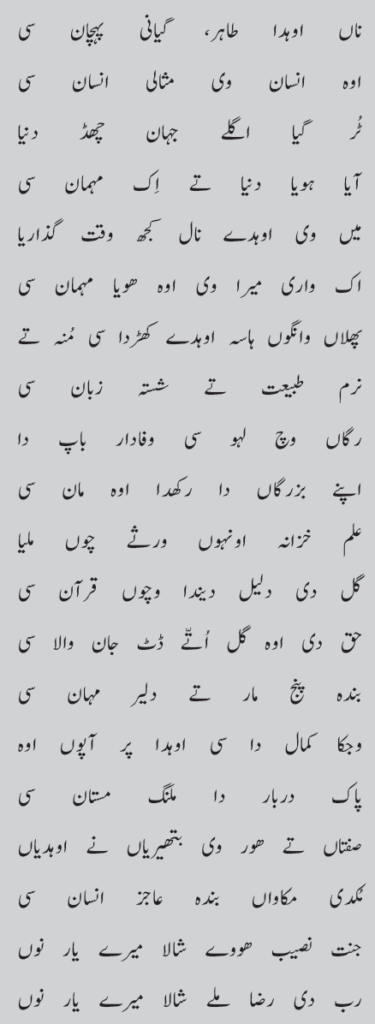 ناں اوہدا طاہر، گیانی پہچان سی
اوہ انسان وی مثالی انسان سی
ٹُر گیا اگلے جہان چھڈ دنیا
آیا ہویا دنیا تے اِک مہمان سی
میں وی اوہدے نال کجھ وقت گذاریا
اک واری میرا وی اوہ ھویا مہمان سی
پھلاں وانگوں ہاسہ اوہدے کھڑدا سی مُنہ تے
نرم طبیعت تے شستہ زبان سی
رگاں وچ لہو سی وفادار باپ دا
اپنے بزرگاں دا رکھدا اوہ مان سی
علم خزانہ اونہوں ورثے چوں ملیا
گل دی دلیل دیندا وچوں قرآن سی
حق دی اوہ گل اُتّے ڈٹ جان والا سی
بندہ پنج مار تے دلیر مہان سی
وجکا کمال دا سی اوہدا پر آپوں اوہ
پاک دربار دا ملنگ مستان سی
صفتاں تے ھور وی بتھیریاں نے اوہدیاں
مُکدی مکاواں بندہ عاجز انسان سی
جنت نصیب ھووے شالا میرے یار نوں
رب دی رضا ملے شالا میرے یار نوں